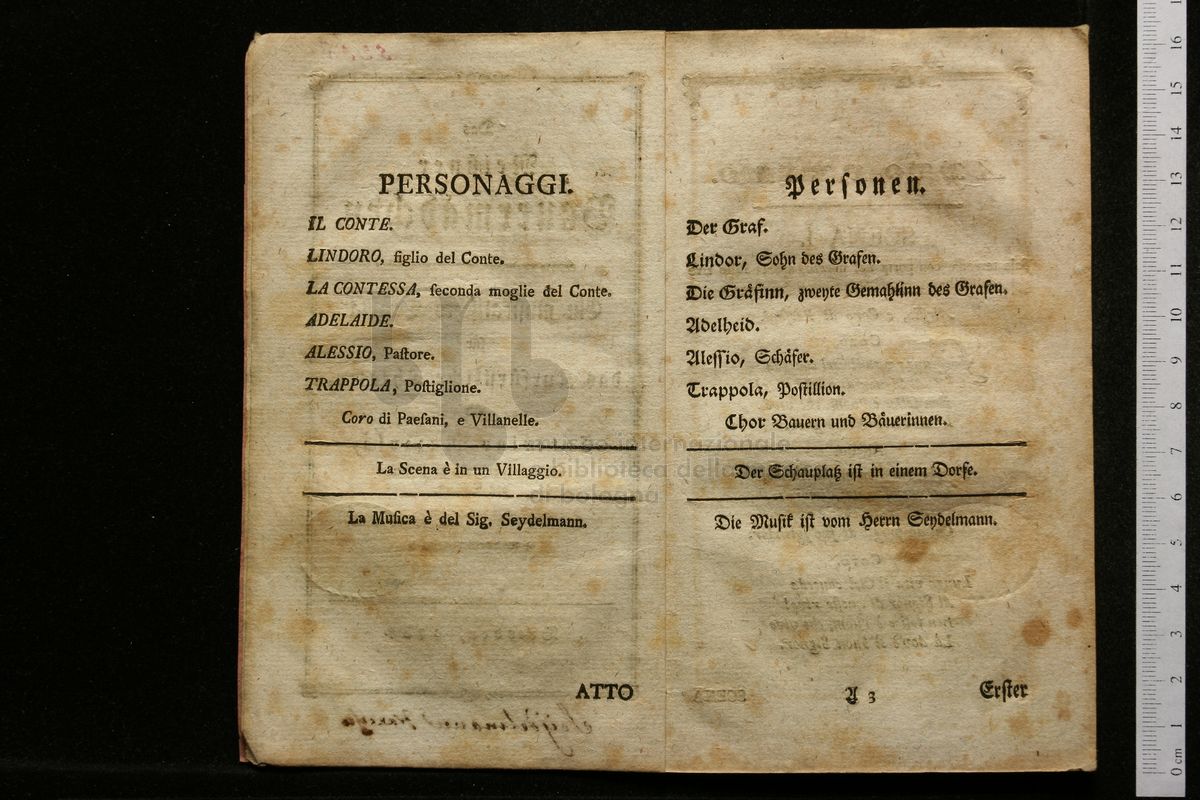 PERSONAGGI.
IL CONTE.
LINDORO, figlio del Conte.
LA CONTESSA, ſeconda moglie del Conte.
ADELAIDE.
ALESSIO, Paſtore.
TRAPPOLA, Poſtiglione.
Coro di Paeſani, e Villanelle.
La Scena è in un Villaggio.
La Muſica è del Sig. Seydelmann.
ATTO
Perſonen.
Der Graf.
Lindor, Sohn des Grafen.
Die Gräfinn, zweyte Gemahlinn des Grafen.
Adelheid.
Aleſſio, Schäfer.
Trappola, Poſtillion.
Chor Bauern und Bäuerinnen.
Der Schauplatz iſt in einem Dorfe.
Die Muſik iſt vom Herrn Seydelmann.
A 3
Erſter
museo internazionale
biblioteca della
di bologna
0 cm 1 2 3 4 5 6 7 8 9 10 11 12 13 14 15 16